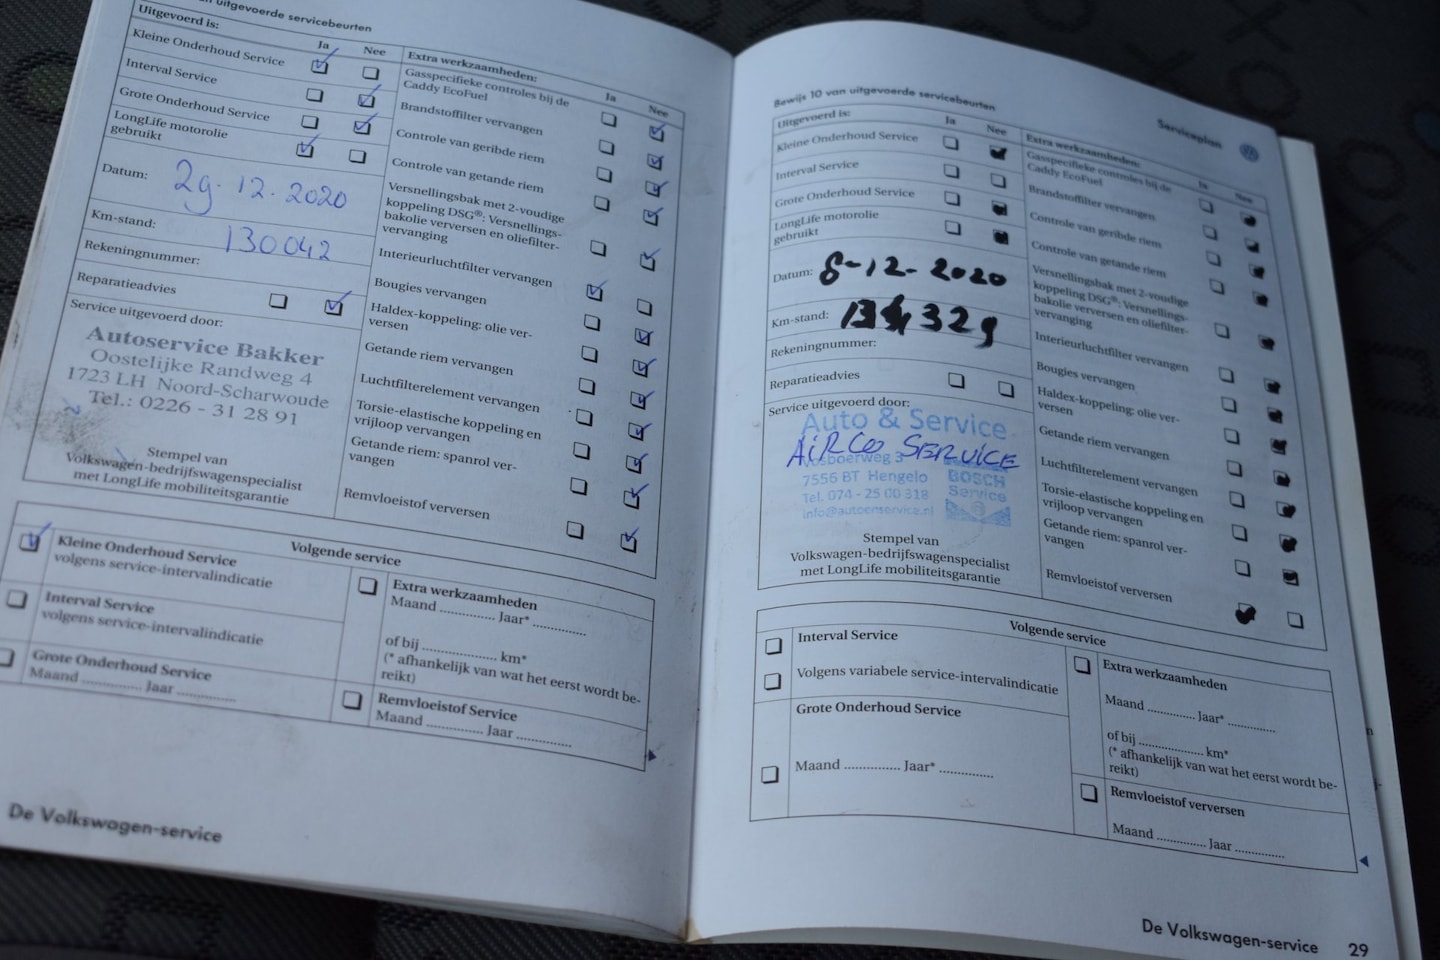 van uitgevoerde servicebeurten
Uitgevoerd is:
Ja
Nee
Kleine Onderhoud Service
Interval Service
Grote Onderhoud Service
LongLife motorolie
gebruikt
Datum: 29.12.2020
Km-stand: 130042
Rekeningnummer:
Reparatieadvies
Service uitgevoerd door:
Autoservice Bakker
Oostelijke Randweg 4
1723 LH Noord-Scharwoude
Tel.: 0226 - 31 28 91
Stempel van
Volkswagen-bedrijfswagenspecialist
met LongLife mobiliteitsgarantie
Extra werkzaamheden:
Ja
Nee
Gasspecifieke controles bij de
Caddy EcoFuel
Brandstoffilter vervangen
Controle van geribde riem
Controle van getande riem
Versnellingsbak met 2-voudige
koppeling DSG®: Versnellings-
bakolie verversen en oliefilter-
vervanging
Interieurluchtfilter vervangen
Bougies vervangen
Haldex-koppeling: olie ver-
versen
Getande riem vervangen
Luchtfilterelement vervangen
Torsie-elastische koppeling en
vrijloop vervangen
Getande riem: spanrol ver-
vangen
Remvloeistof verversen
Volgende service
Kleine Onderhoud Service
volgens service-intervalindicatie
Interval Service
volgens service-intervalindicatie
Grote Onderhoud Service
Maand .............. Jaar ..............
Extra werkzaamheden
Maand .............. Jaar* ..............
of bij ................... km*
(* afhankelijk van wat het eerst wordt be-
reikt)
Remvloeistof Service
Maand .............. Jaar ..............
De Volkswagen-service
Serviceplan
Bewijs 10 van uitgevoerde servicebeurten
Uitgevoerd is:
Ja
Nee
Kleine Onderhoud Service
Interval Service
Grote Onderhoud Service
LongLife motorolie
gebruikt
Datum: 8-12-2020
Km-stand:
Rekeningnummer:
Reparatieadvies
Service uitgevoerd door:
Auto & Service
AIRCO SERVICE
Vosboerweg 3
7556 BT Hengelo
BOSCH
Tel. 074 - 25 00 318
Service
info@autoenservice.nl
Stempel van
Volkswagen-bedrijfswagenspecialist
met LongLife mobiliteitsgarantie
Extra werkzaamheden:
Ja
Nee
Gasspecifieke controles bij de
Caddy EcoFuel
Brandstoffilter vervangen
Controle van geribde riem
Controle van getande riem
Versnellingsbak met 2-voudige
koppeling DSG®: Versnellings-
bakolie verversen en oliefilter-
vervanging
Interieurluchtfilter vervangen
Bougies vervangen
Haldex-koppeling: olie ver-
versen
Getande riem vervangen
Luchtfilterelement vervangen
Torsie-elastische koppeling en
vrijloop vervangen
Getande riem: spanrol ver-
vangen
Remvloeistof verversen
Volgende service
Interval Service
Volgens variabele service-intervalindicatie
Grote Onderhoud Service
Maand .............. Jaar* ..............
Extra werkzaamheden
Maand .............. Jaar* ..............
of bij ................... km*
(* afhankelijk van wat het eerst wordt be-
reikt)
Remvloeistof verversen
Maand .............. Jaar ..............
De Volkswagen-service 29